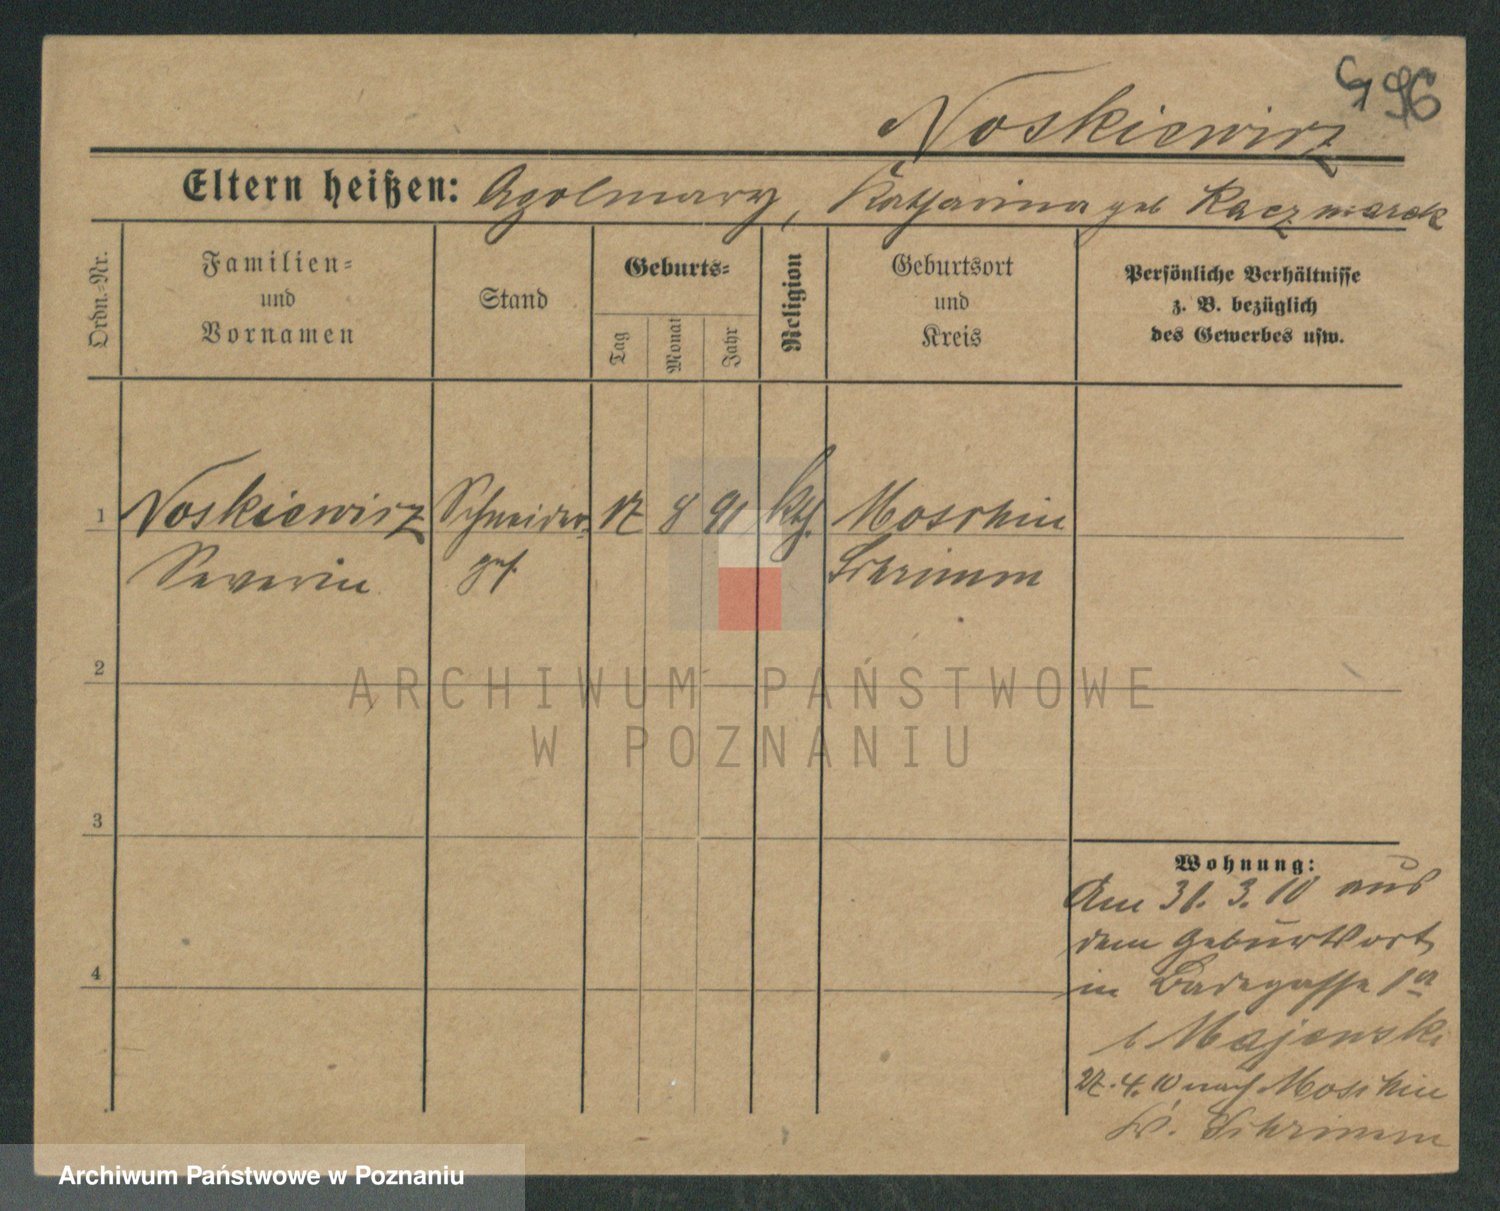 96
Noskiewicz
Eltern heißen: Katharina geb Kaczmarek
Ordn.-Nr.
Familien-
und
Vornamen
Stand
Geburts-
Tag
Monat
Jahr
Religion
Geburtsort
und
Kreis
Persönliche Verhältnisse
z. B. bezüglich
des Gewerbes usw.
1 Noskiewicz Schneider- 17 8 91 kth. Moschin
Severin ges. Schrimm
2
ARCHIWUM PAŃSTWOWE
W POZNANIU
3
4
Wohnung:
Am 31. 3. 10 aus
dem Geburtsort
in Badegasse 1a
b Majewski
27. 4. 10 nach Moschin
Kr. Schrimm
Archiwum Państwowe w Poznaniu